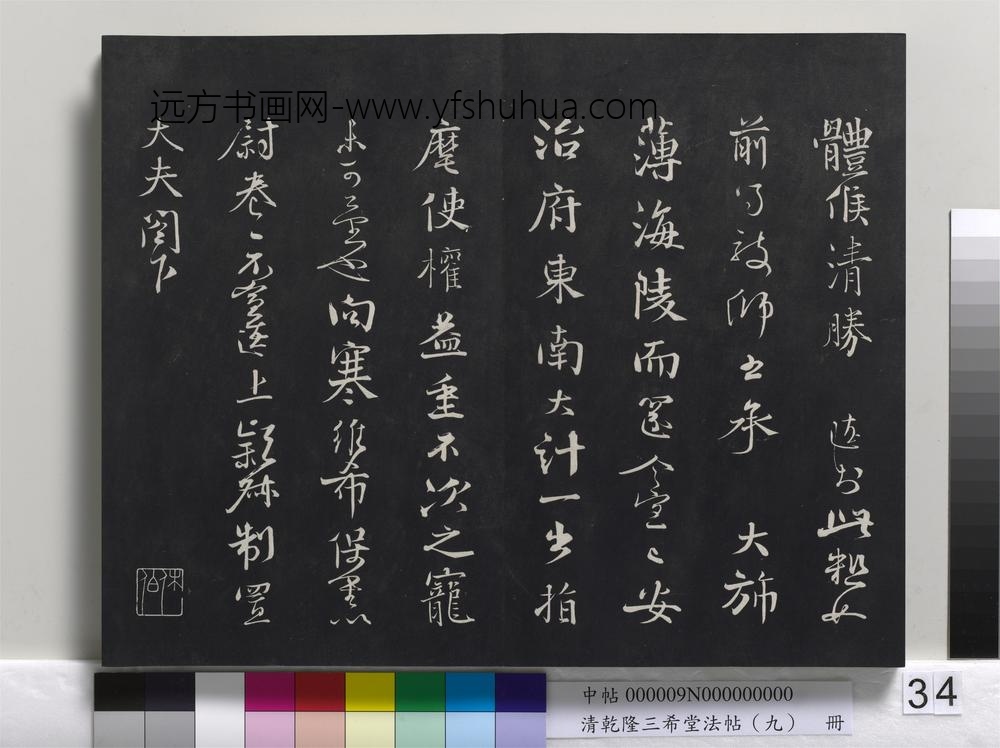 體候清勝 適於此粗安
前得教師書承 大旆
薄海陵而還今宣之安
治府東南大計一出指
麾使權益重不次之寵
未可量也向寒維希保重以
慰卷卷不宣 適上 制置
大夫閤下
休伯
远方书画网-www.yfshuhua.com
中帖 000009N000000000
清乾隆三希堂法帖（九） 冊
34